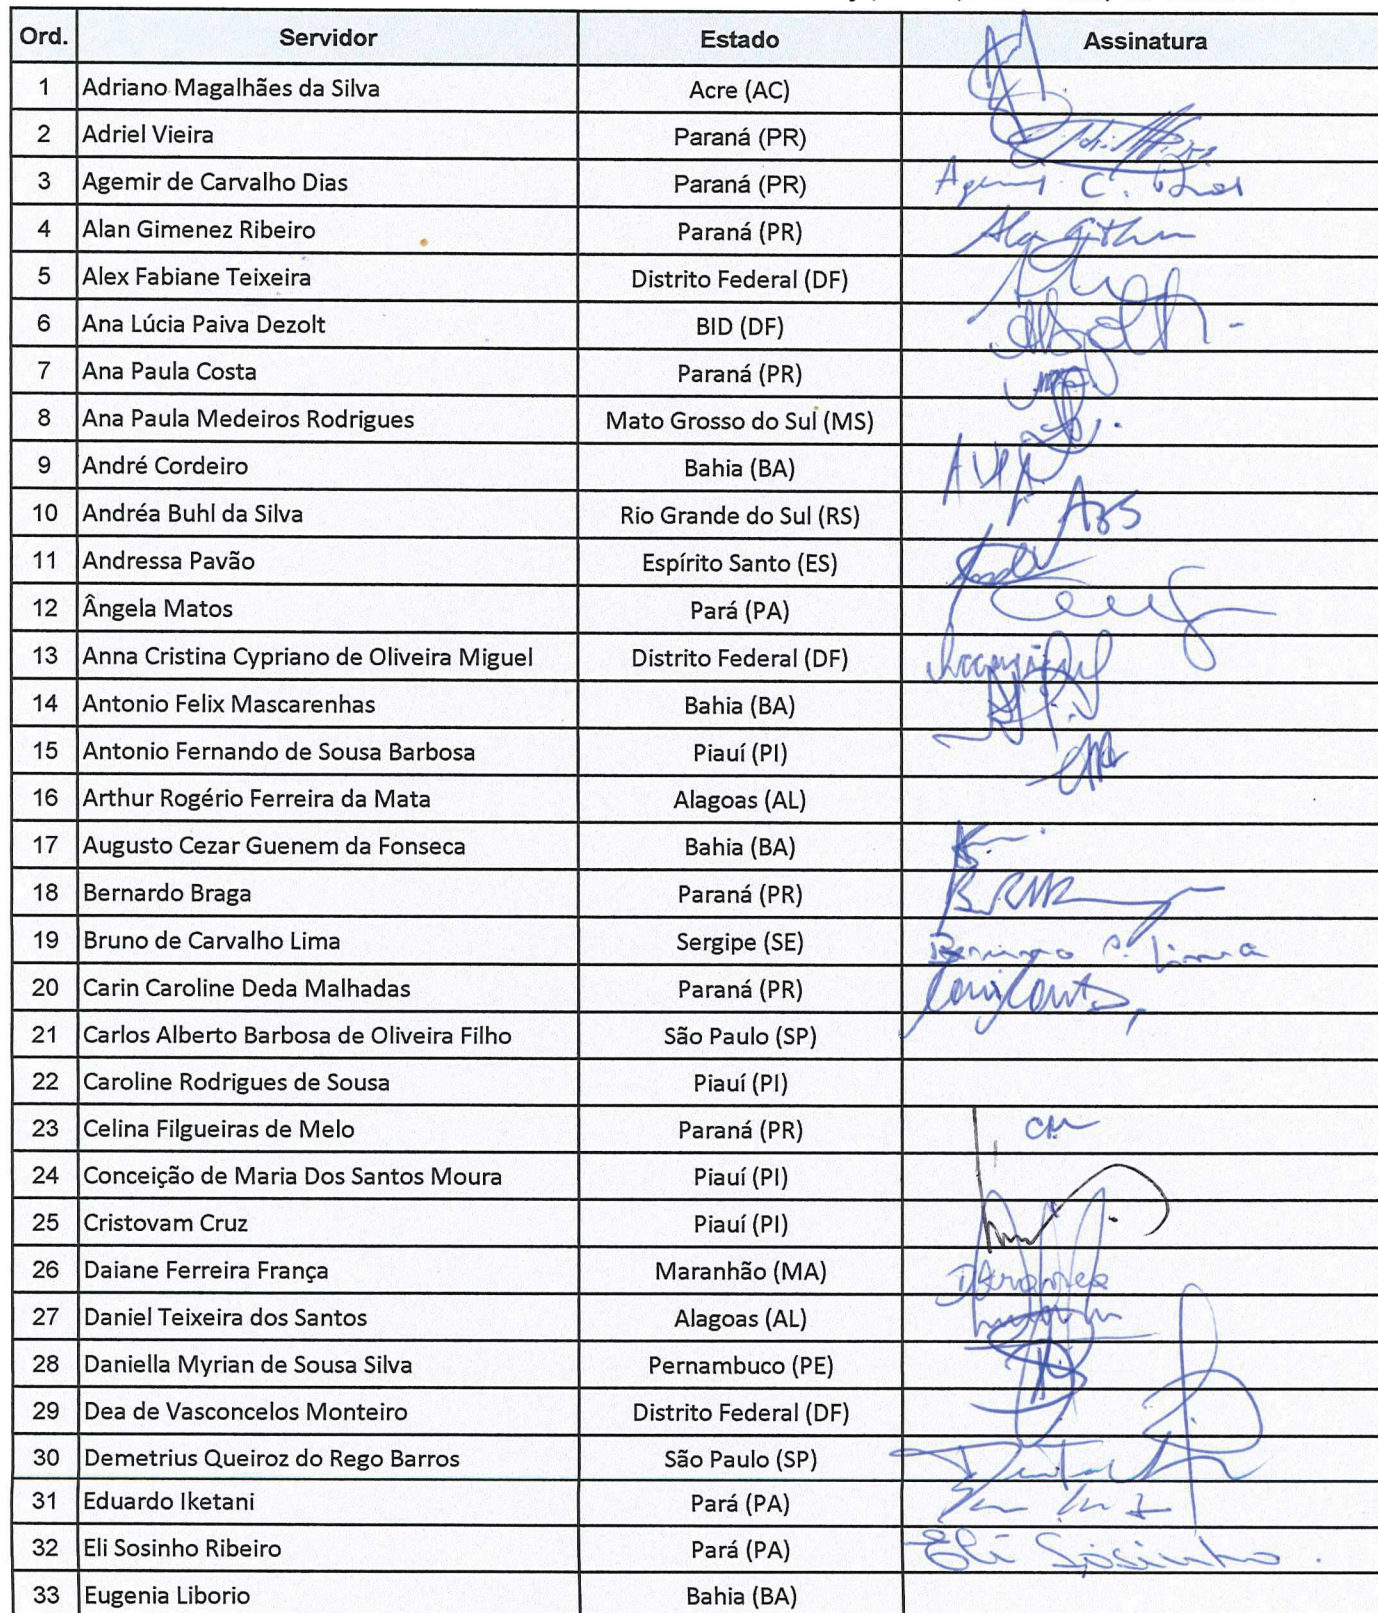 Ord. Servidor Estado Assinatura
1 Adriano Magalhães da Silva Acre (AC)
2 Adriel Vieira Paraná (PR)
3 Agemir de Carvalho Dias Paraná (PR) Agemir C. Dias
4 Alan Gimenez Ribeiro Paraná (PR)
5 Alex Fabiane Teixeira Distrito Federal (DF)
6 Ana Lúcia Paiva Dezolt BID (DF)
7 Ana Paula Costa Paraná (PR)
8 Ana Paula Medeiros Rodrigues Mato Grosso do Sul (MS)
9 André Cordeiro Bahia (BA)
10 Andréa Buhl da Silva Rio Grande do Sul (RS) ABS
11 Andressa Pavão Espírito Santo (ES)
12 Ângela Matos Pará (PA)
13 Anna Cristina Cypriano de Oliveira Miguel Distrito Federal (DF)
14 Antonio Felix Mascarenhas Bahia (BA)
15 Antonio Fernando de Sousa Barbosa Piauí (PI)
16 Arthur Rogério Ferreira da Mata Alagoas (AL)
17 Augusto Cezar Guenem da Fonseca Bahia (BA)
18 Bernardo Braga Paraná (PR)
19 Bruno de Carvalho Lima Sergipe (SE) Lima
20 Carin Caroline Deda Malhadas Paraná (PR)
21 Carlos Alberto Barbosa de Oliveira Filho São Paulo (SP)
22 Caroline Rodrigues de Sousa Piauí (PI)
23 Celina Filgueiras de Melo Paraná (PR)
24 Conceição de Maria Dos Santos Moura Piauí (PI)
25 Cristovam Cruz Piauí (PI)
26 Daiane Ferreira França Maranhão (MA)
27 Daniel Teixeira dos Santos Alagoas (AL)
28 Daniella Myrian de Sousa Silva Pernambuco (PE)
29 Dea de Vasconcelos Monteiro Distrito Federal (DF)
30 Demetrius Queiroz do Rego Barros São Paulo (SP)
31 Eduardo Iketani Pará (PA)
32 Eli Sosinho Ribeiro Pará (PA) Eli Sosinho
33 Eugenia Liborio Bahia (BA)